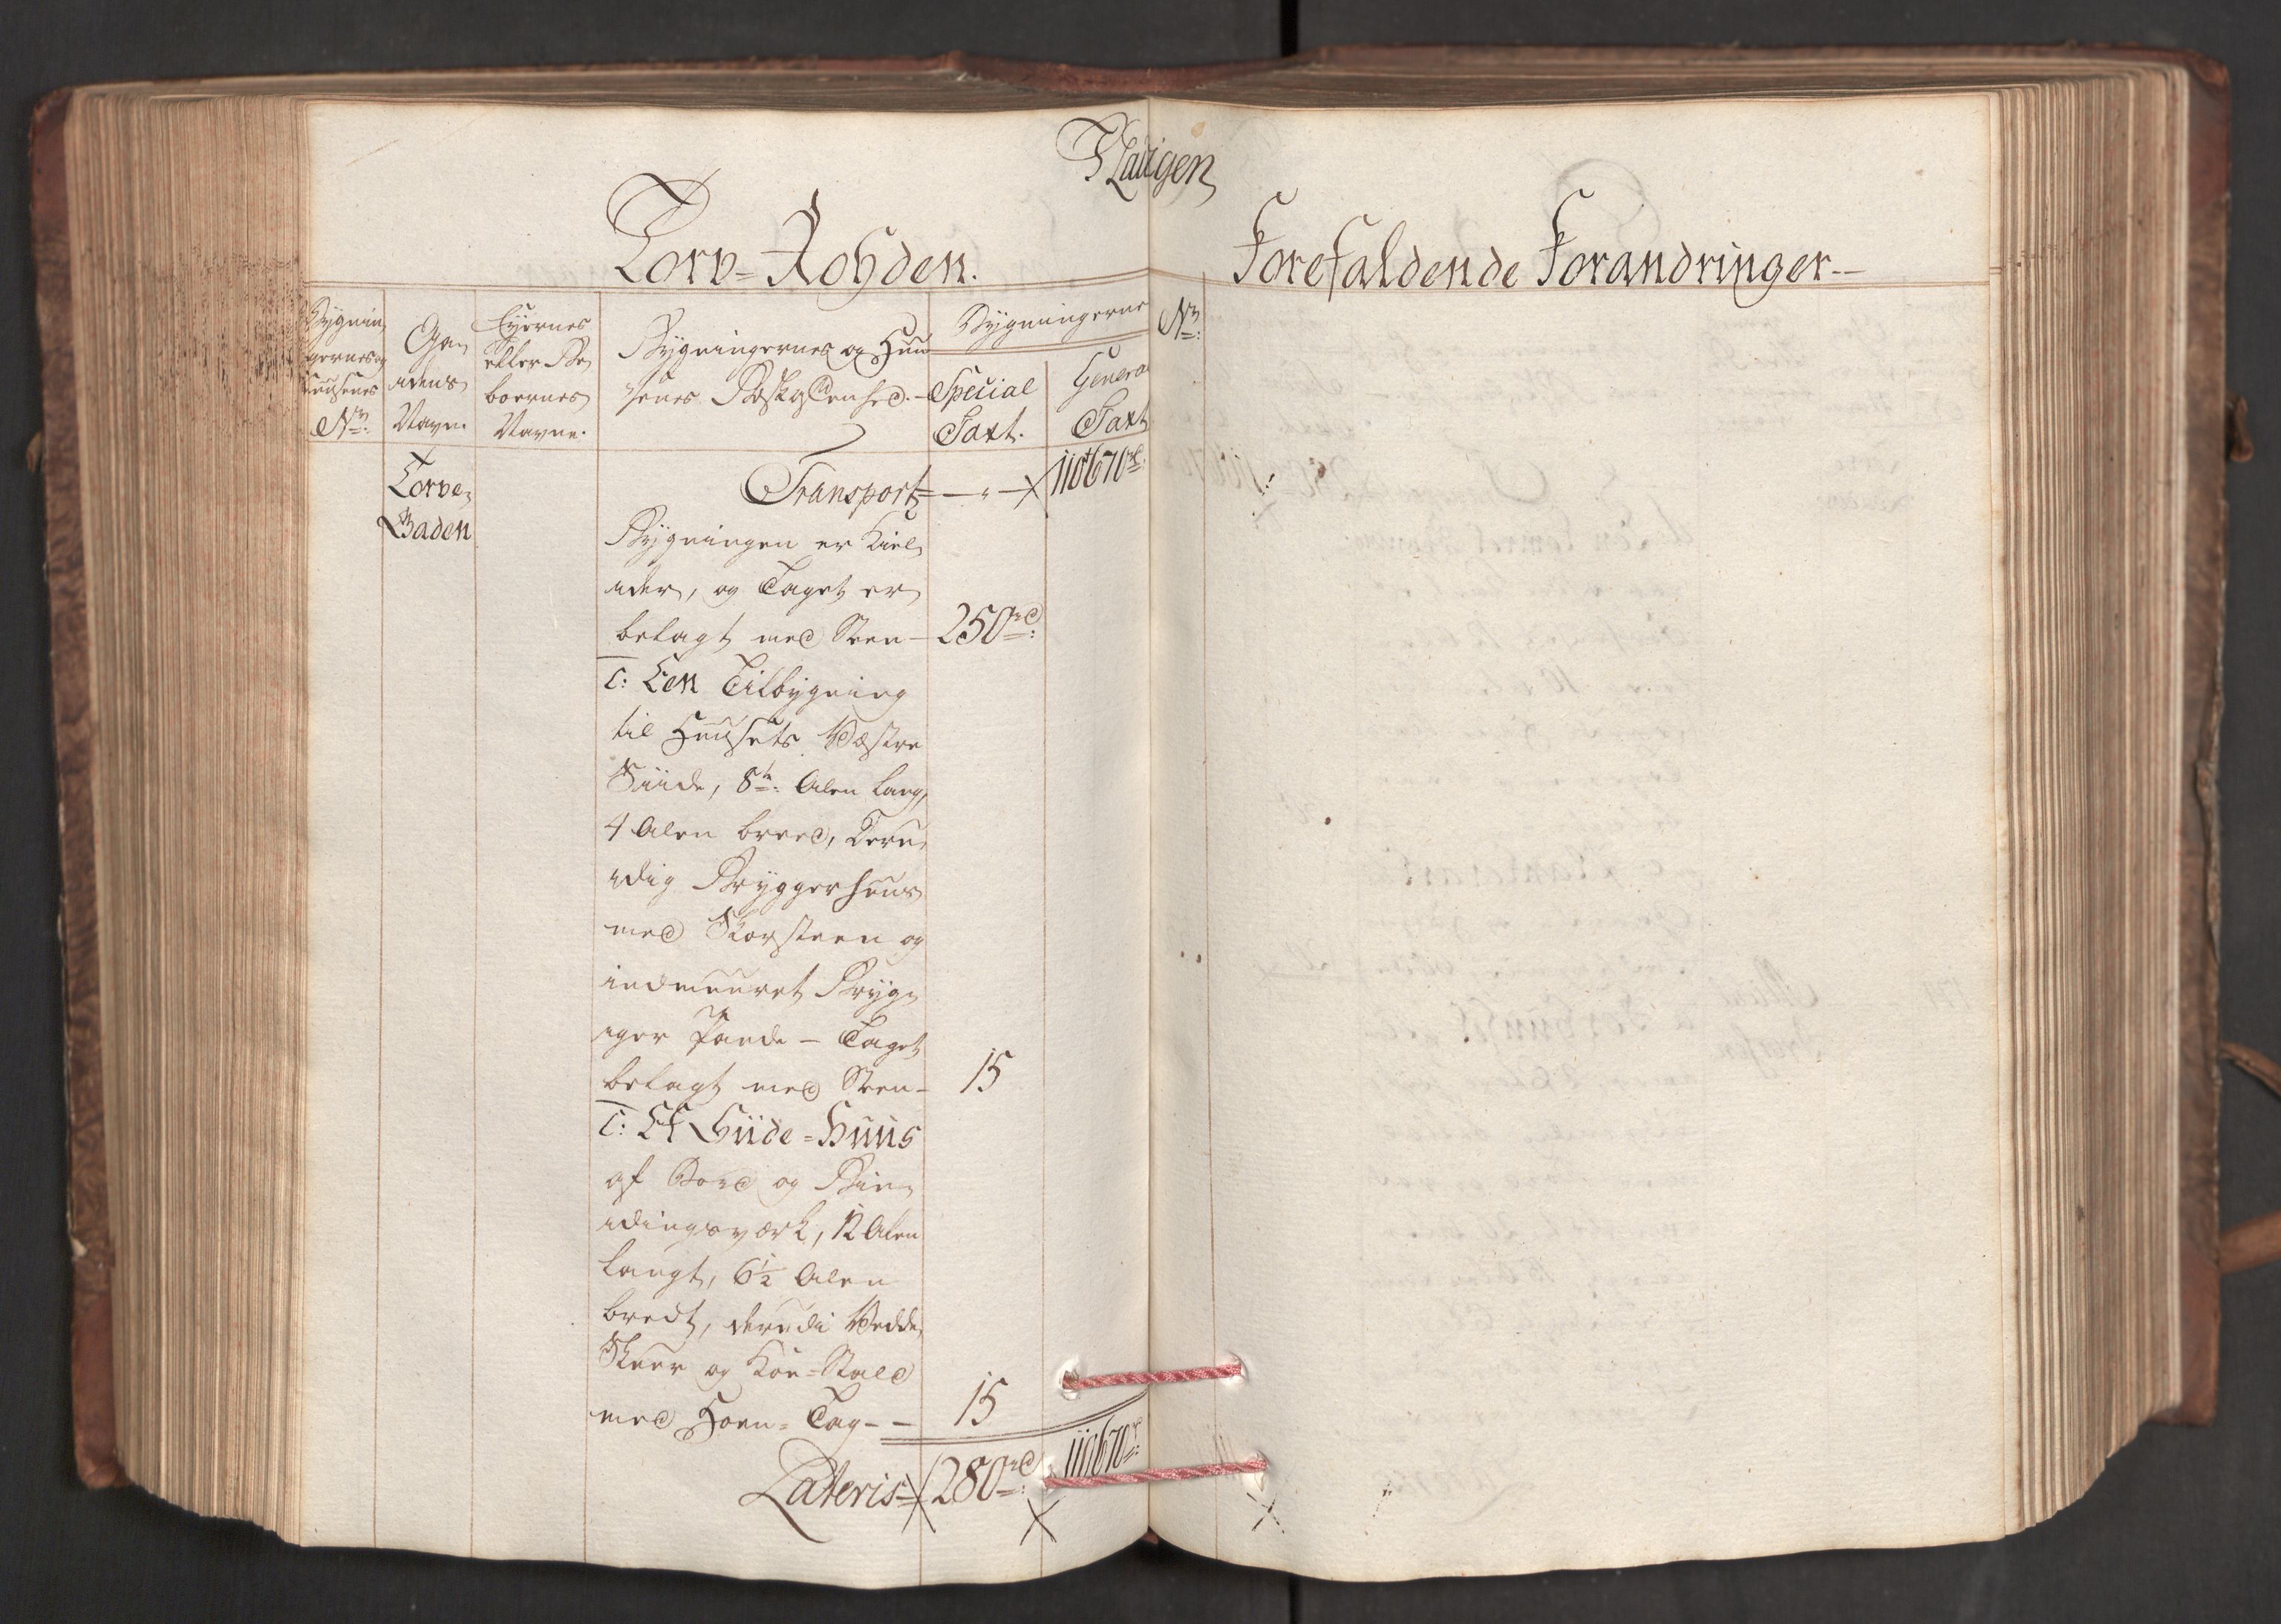 Torv-Rohden.
Forefaldende Forandringer--
Bygnin
gernes og
Huusenes
No:
Ga
dens
Navn.
Eyernes
eller Be
boernes
Navne.
Bygningernes og Huu
senes Beskaffenhed.-
Bygningerne
Special
Taxt.
General
Taxt
No:
Torve
Gaden
Transport =
110670 rd:
Bygningen er Kiel
der, og Taget er
belagt med Steen - 250 rd:
c: Een Tilbygning
til Huusets Væstre
Siide, 8te: Alen lang,
4 Alen breed, deru
dig Bryggerhuus
med Skorsteen og
indmuuret Bryg
ger Pande - Taget
belagt med Steen - 15
c: Et Siide-Huus
af Bord og Bin
dingsværk, 12 Alen
langt, 6 1/2 Alen
bredt, derudi Vedde
Skuur og Koe-Stald
med Hoen-Tag - - 15
Lateris = 280 rd: 110670 rd: